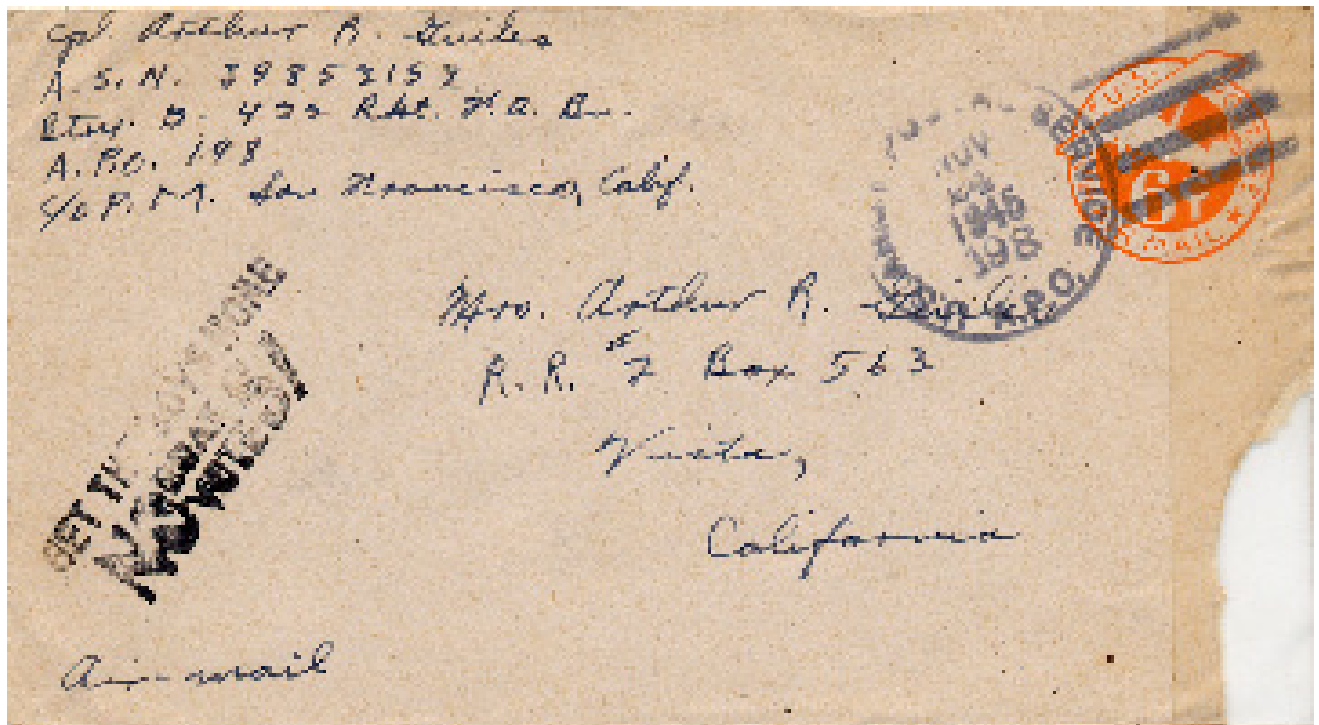 Cpl Arthur R. Guiles
A.S.N. 39853153
Btry. D. 433 Rkt. F.A. Bn.
A.P.O. 198
c/o P.M. San Francisco, Calif.
1946
198
A.P.O.
U.S.
6¢
Mrs. Arthur R. Guiles
R.R. # 2 Box 563
Vista,
California
GET THE
NOW!
Air-mail